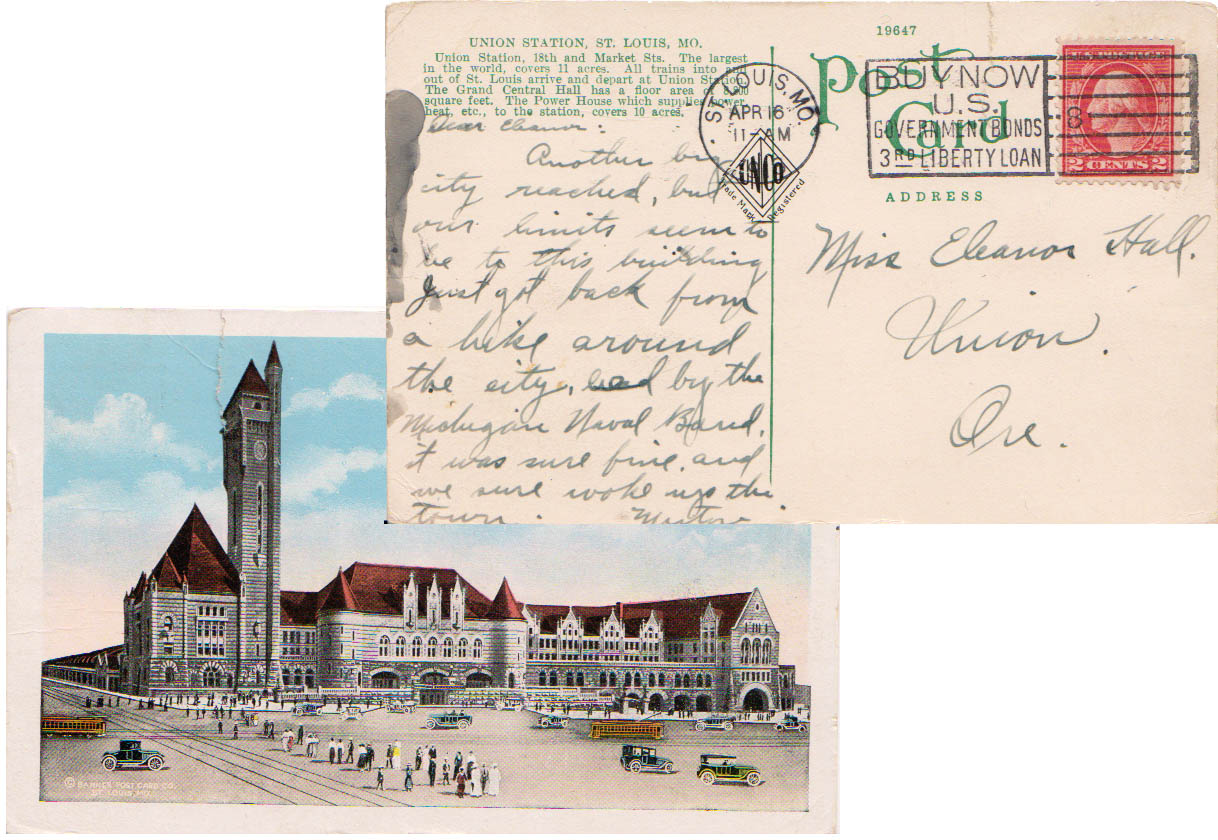 19647
UNION STATION, ST. LOUIS, MO.
Union Station, 18th and Market Sts. The largest
in the world, covers 11 acres. All trains into and
out of St. Louis arrive and depart at Union Station.
The Grand Central Hall has a floor area of
square feet. The Power House which supplies power,
heat, etc., to the station, covers 10 acres.
Dear Eleanor:
Another big
city reached, but
our limits seem to
be to this building
Just got back from
a hike around
the city, lead by the
Michigan Naval Band,
it was sure fine, and
we sure woke up the
town.
ST. LOUIS, MO.
APR 16
11-AM
8
BUY NOW
U.S.
GOVERNMENT BONDS
3RD LIBERTY LOAN
Post
Card
2 CENTS 2
Trade Mark Registered
ADDRESS
Miss Eleanor Hall.
Union.
Ore.
© BARKER POST CARD CO.
ST. LOUIS, MO.